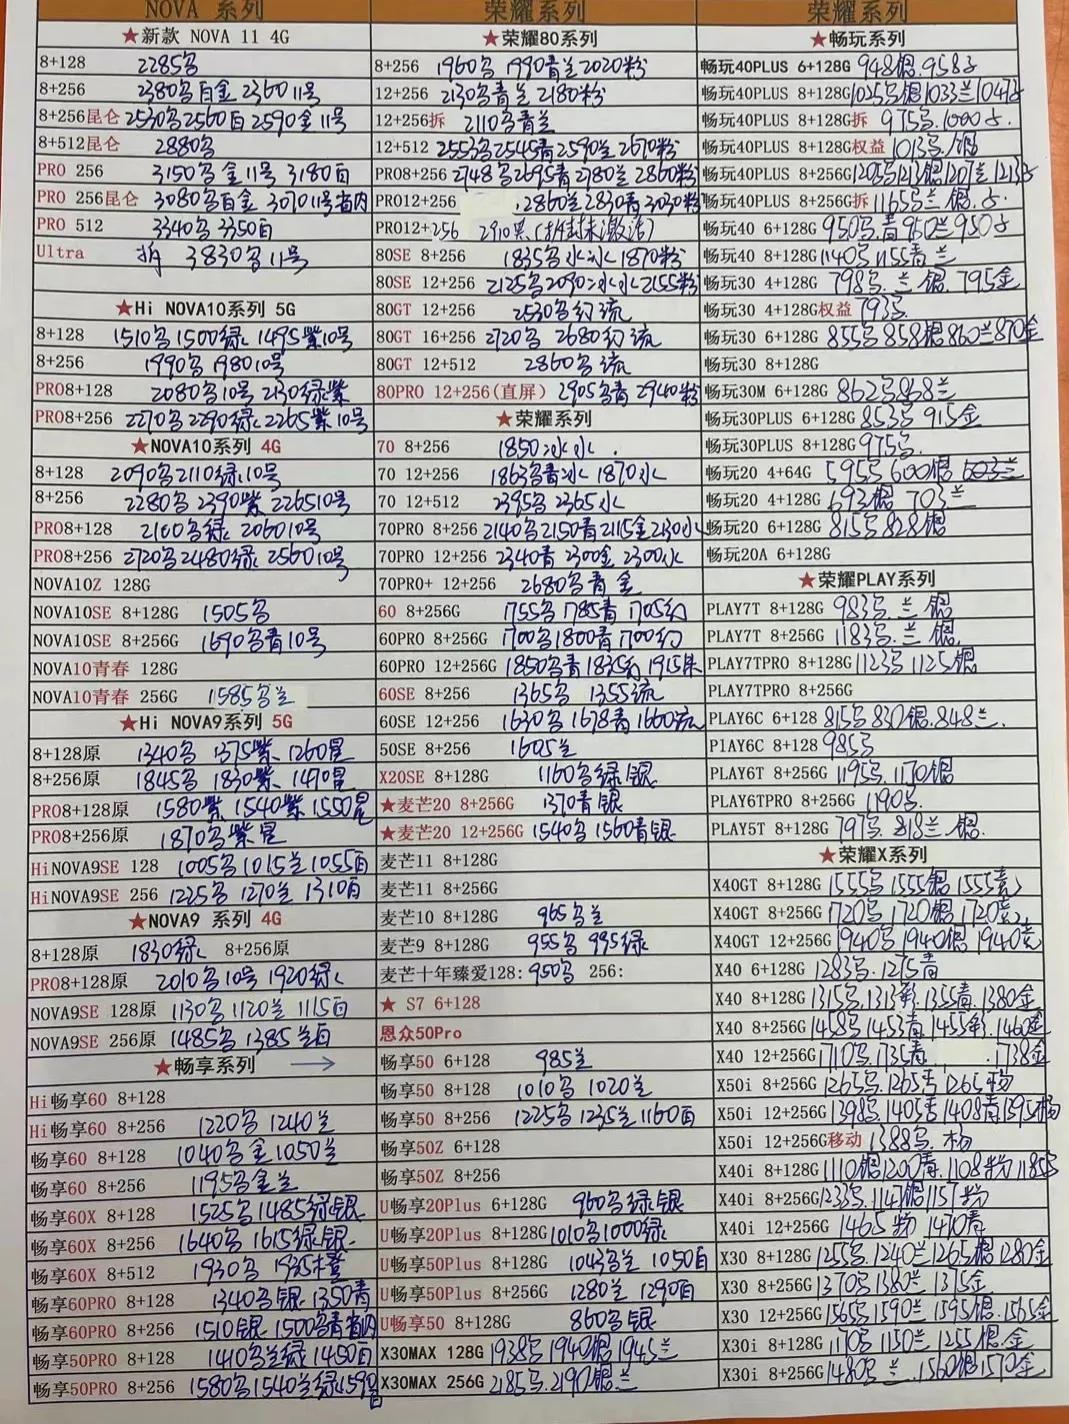 NOVA 系列
★新款 NOVA 11 4G
8+128 2285
8+256 2380 白金 2360 11号
8+256昆仑 2530 2560白 2590金 11号
8+512昆仑 2880
PRO 256 3150 金11号 3180白
PRO 256昆仑 3080 白金 3070 11号省内
PRO 512 3340 3350白
Ultra 拆 3830 11号
★Hi NOVA10系列 5G
8+128 1510 1500绿 1495紫10号
8+256 1990 1980 10号
PRO8+128 2080 10号 2130绿紫
PRO8+256 2270 2290绿 2265紫10号
★NOVA10系列 4G
8+128 2090 2110绿10号
8+256 2280 2390紫 2265 10号
PRO8+128 2100 绿 2060 10号
PRO8+256 2720 2480绿 2560 10号
NOVA10Z 128G
NOVA10SE 8+128G 1505
NOVA10SE 8+256G 1690 青10号
NOVA10青春 128G
NOVA10青春 256G 1585 兰
★Hi NOVA9系列 5G
8+128原 1340 1375紫 1260星
8+256原 1845 1830紫 1490星
PRO8+128原 1580紫 1540紫 1550星
PRO8+256原 1870 紫星
HiNOVA9SE 128 1005 1015兰 1055白
HiNOVA9SE 256 1225 1270兰 1310白
★NOVA9 系列 4G
8+128原 1830绿 8+256原
PRO8+128原 2010 10号 1920绿
NOVA9SE 128原 1130 1120兰 1115白
NOVA9SE 256原 1485 1385兰白
★畅享系列 →
Hi畅享60 8+128
Hi畅享60 8+256 1220 1240兰
畅享60 8+128 1040 金1050兰
畅享60 8+256 1195 金兰
畅享60X 8+128 1525 1485绿银
畅享60X 8+256 1640 1615绿银
畅享60X 8+512 1930 1935橙
畅享60PRO 8+128 1340 银 1350青
畅享60PRO 8+256 1510银 1500 青省内
畅享50PRO 8+128 1410 兰绿 1450白
畅享50PRO 8+256 1580 1540兰绿 1599白
荣耀系列
★荣耀80系列
8+256 1960 1990青兰 2020粉
12+256 2130 青兰 2180粉
12+256拆 2110 青兰
12+512 2553 2545青 2590兰 2670粉
PRO8+256 2748 2695青 2780兰 2860粉
PRO12+256 2860兰 2830青 3030粉
PRO12+256 2910黑(拆封未激活)
80SE 8+256 1835 冰冰 1870粉
80SE 12+256 2125 2090冰冰 2155粉
80GT 12+256 2530 幻流
80GT 16+256 2720 2680幻流
80GT 12+512 2860 流
80PRO 12+256(直屏) 2905 青 2940粉
★荣耀系列
70 8+256 1850冰冰
70 12+256 1863 青冰 1870冰
70 12+512 2395 2365冰
70PRO 8+256 2140 2150青 2115金 2130冰
70PRO 12+256 2340青 2300金 2300冰
70PRO+ 12+256 2680 青金
60 8+256G 1755 1785青 1705幻
60PRO 8+256G 1700 1800青 1700幻
60PRO 12+256G 1850 青 1835幻 1915朱
60SE 8+256 1365 1355流
60SE 12+256 1630 1678青 1660流
50SE 8+256 1605兰
X20SE 8+128G 1160 绿银
★麦芒20 8+256G 1370青银
★麦芒20 12+256G 1540 1560青银
麦芒11 8+128G
麦芒11 8+256G
麦芒10 8+128G 965 兰
麦芒9 8+128G 955 995绿
麦芒十年臻爱128: 950 256:
★ S7 6+128
恩众50Pro
畅享50 6+128 985兰
畅享50 8+128 1010 1020兰
畅享50 8+256 1225 1235兰 1160白
畅享50Z 6+128
畅享50Z 8+256
U畅享20Plus 6+128G 960 绿银
U畅享20Plus 8+128G 1010 1000绿
U畅享50Plus 8+128G 1043 兰 1050白
U畅享50Plus 8+256G 1280兰 1290白
U畅享50 8+128G 860 银
X30MAX 128G 1938 1940银 1945兰
X30MAX 256G 2185 2190银.兰
荣耀系列
★畅玩系列
畅玩40PLUS 6+128G 948银.958
畅玩40PLUS 8+128G 1025 银1033兰1047
畅玩40PLUS 8+128G拆 975.1000
畅玩40PLUS 8+128G权益 1013.银
畅玩40PLUS 8+256G 1205 1213银1207兰1213
畅玩40PLUS 8+256G拆 1165 兰银.
畅玩40 6+128G 950.青 950兰 950
畅玩40 8+128G 1140 1155青兰
畅玩30 4+128G 798.兰.银.795金
畅玩30 4+128G权益 793
畅玩30 6+128G 855 858银 860兰870金
畅玩30 8+128G
畅玩30M 6+128G 862 868兰
畅玩30PLUS 6+128G 853 915金
畅玩30PLUS 8+128G 975
畅玩20 4+64G 595 600银 603兰
畅玩20 4+128G 693银 703兰
畅玩20 6+128G 815 828银
畅玩20A 6+128G
★荣耀PLAY系列
PLAY7T 8+128G 983.兰 银
PLAY7T 8+256G 1183.兰 银.
PLAY7TPRO 8+128G 1123 1125银
PLAY7TPRO 8+256G
PLAY6C 6+128 815 830银.848兰.
PlAY6C 8+128 985
PLAY6T 8+256G 1195.1170银
PLAY6TPRO 8+256G 1190.
PLAY5T 8+128G 797.818兰.银.
★荣耀X系列
X40GT 8+128G 1555 1555银 1555竞
X40GT 8+256G 1720.1720银 1720竞
X40GT 12+256G 1940 1940银 1940竞
X40 6+128G 1283.1275青
X40 8+128G 1315.1313彩.1355青.1380金
X40 8+256G 1458 1453青.1455彩.1460金
X40 12+256G 1710.1735青 .1738金
X50i 8+256G 1265.1265青 1265杨
X50i 12+256G 1398.1405青 1408青 1395杨
X50i 12+256G移动 1388.杨
X40i 8+128G 1110银1200青.1108粉 1185
X40i 8+256G 1233.1147银 1157粉
X40i 12+256G 1465粉 1470青
X30 8+128G 1255.1240兰1265银1280金
X30 8+256G 1370 1380兰 1375金
X30 12+256G 1565 1590兰 1595银.1565金
X30i 8+128G 1170 1150兰 1255银.金
X30i 8+256G 1480.兰.1560银.1570金